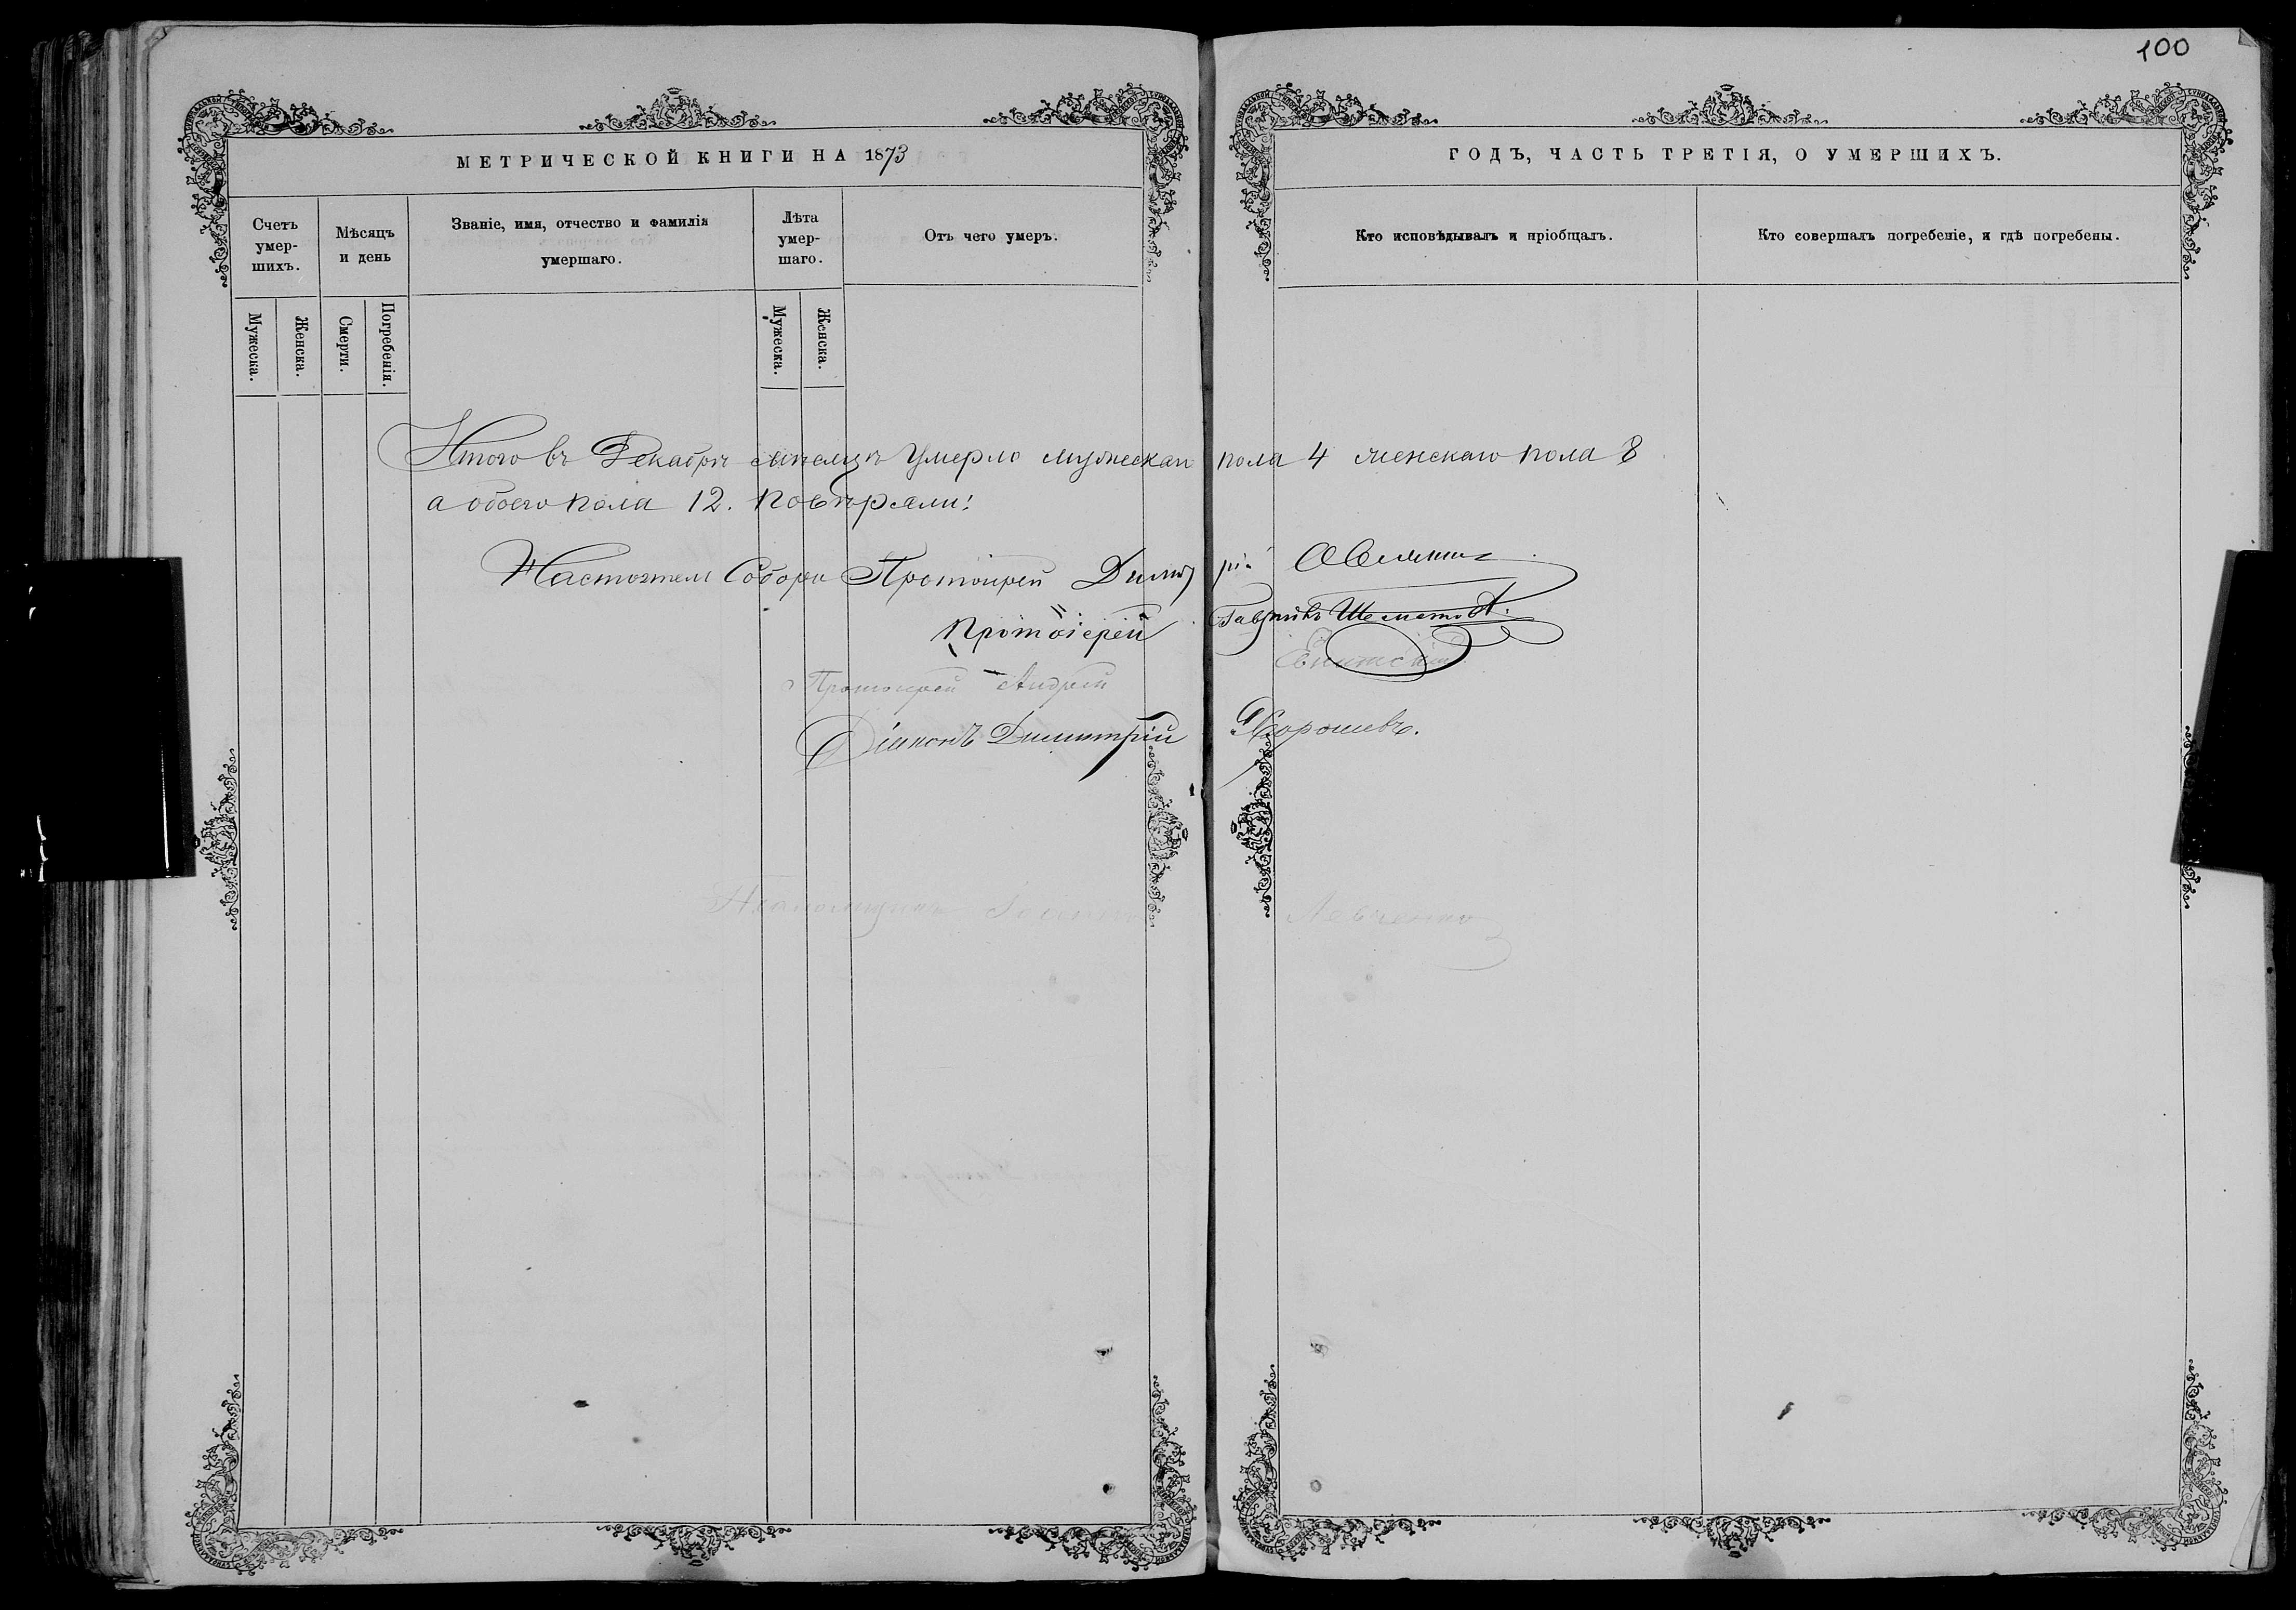 100
МЕТРИЧЕСКОЙ КНИГИ НА 1873
ГОДЪ, ЧАСТЬ ТРЕТІЯ, О УМЕРШИХЪ.
Счетъ умер-
шихъ.
Мѣсяцъ
и день
Званіе, имя, отчество и фамилія
умершаго.
Лѣта
умер-
шаго.
Отъ чего умеръ.
Кто исповѣдывалъ и пріобщалъ.
Кто совершалъ погребеніе, и гдѣ погребены.
Мужеска.
Женска.
Смерти.
Погребенія.
Мужеска.
Женска.
Итого въ Декабрѣ мѣсяцѣ умерло мужескаго пола 4 женскаго пола 8
а обоего пола 12. Повѣряли:
Настоятель Собора Протоіерей Димитрій
Протоіерей Гавріилъ
Протоіерей Андрей
Діаконъ Димитрій Хорошевъ.
Левченко